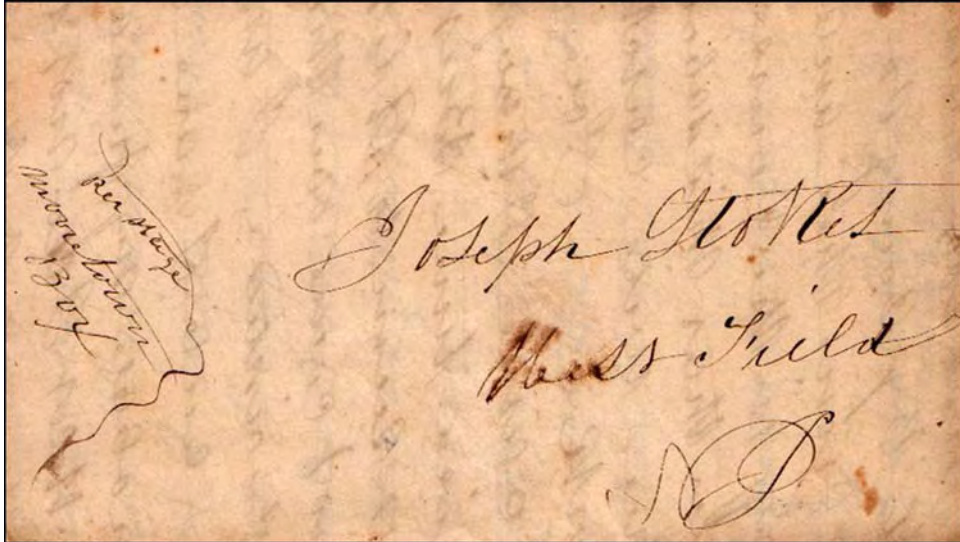 per stage
Mooretown
Box
Joseph Stokes
West Field
NJ